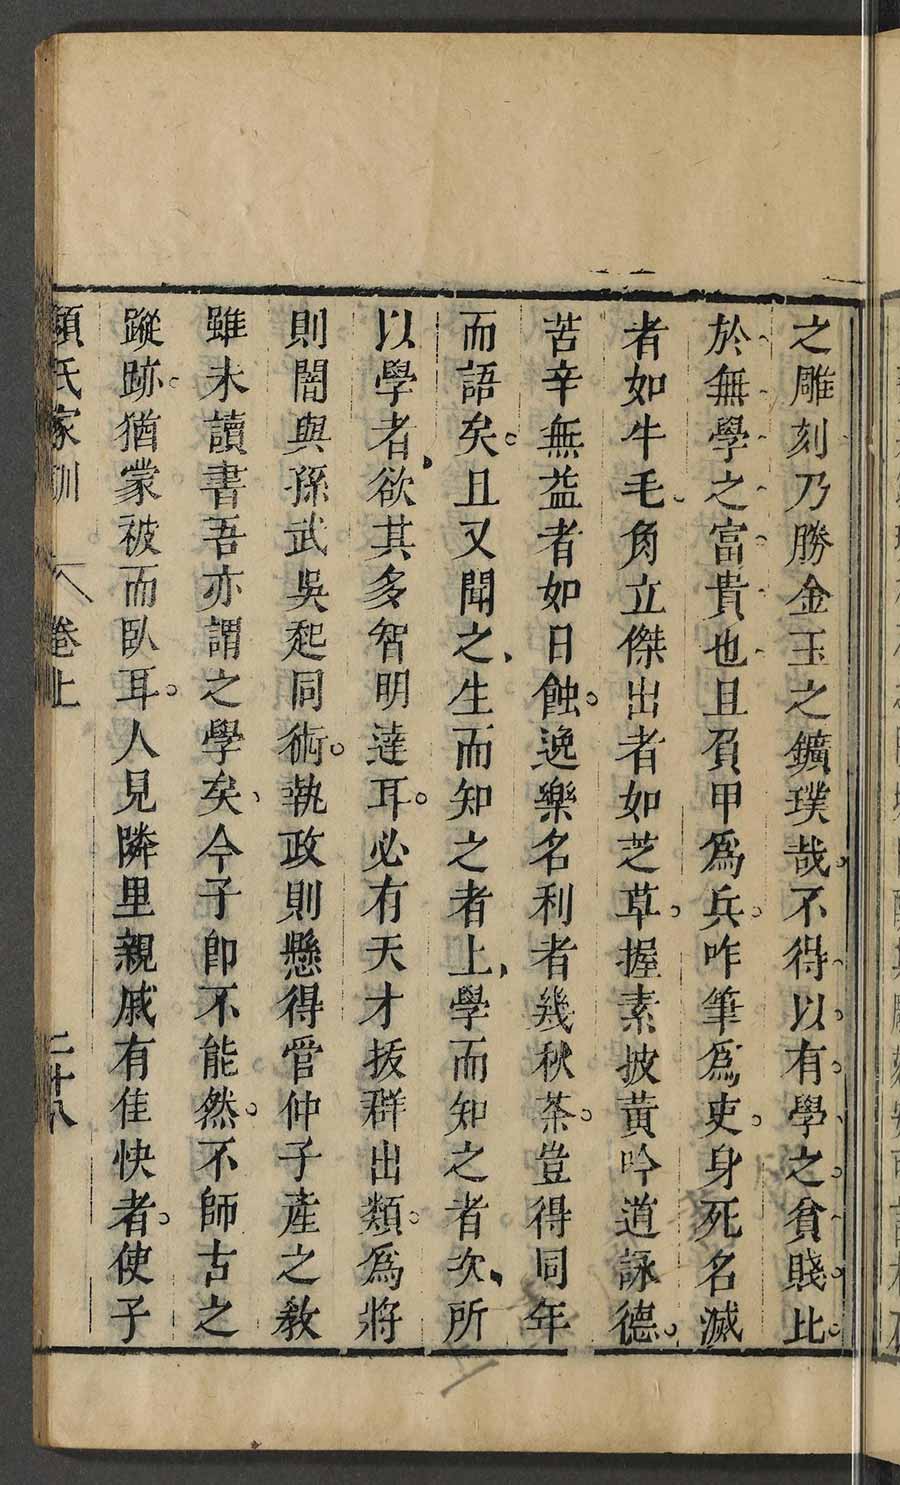 之雕刻乃勝金玉之鑛璞哉不得以有學之貧賤比
於無學之富貴也且負甲爲兵咋筆爲吏身死名滅
者如牛毛角立傑出者如芝草握素披黃吟道詠德
苦辛無益者如日蝕逸樂名利者幾秋荼豈得同年
而語矣且又聞之生而知之者上學而知之者次所
以學者欲其多智明達耳必有天才拔群出類爲將
則闇與孫武吳起同術執政則懸得管仲子產之教
雖未讀書吾亦謂之學矣今子即不能然不師古之
蹤跡猶蒙被而臥耳人見隣里親戚有佳快者使子
顏氏家訓 卷上 二十八